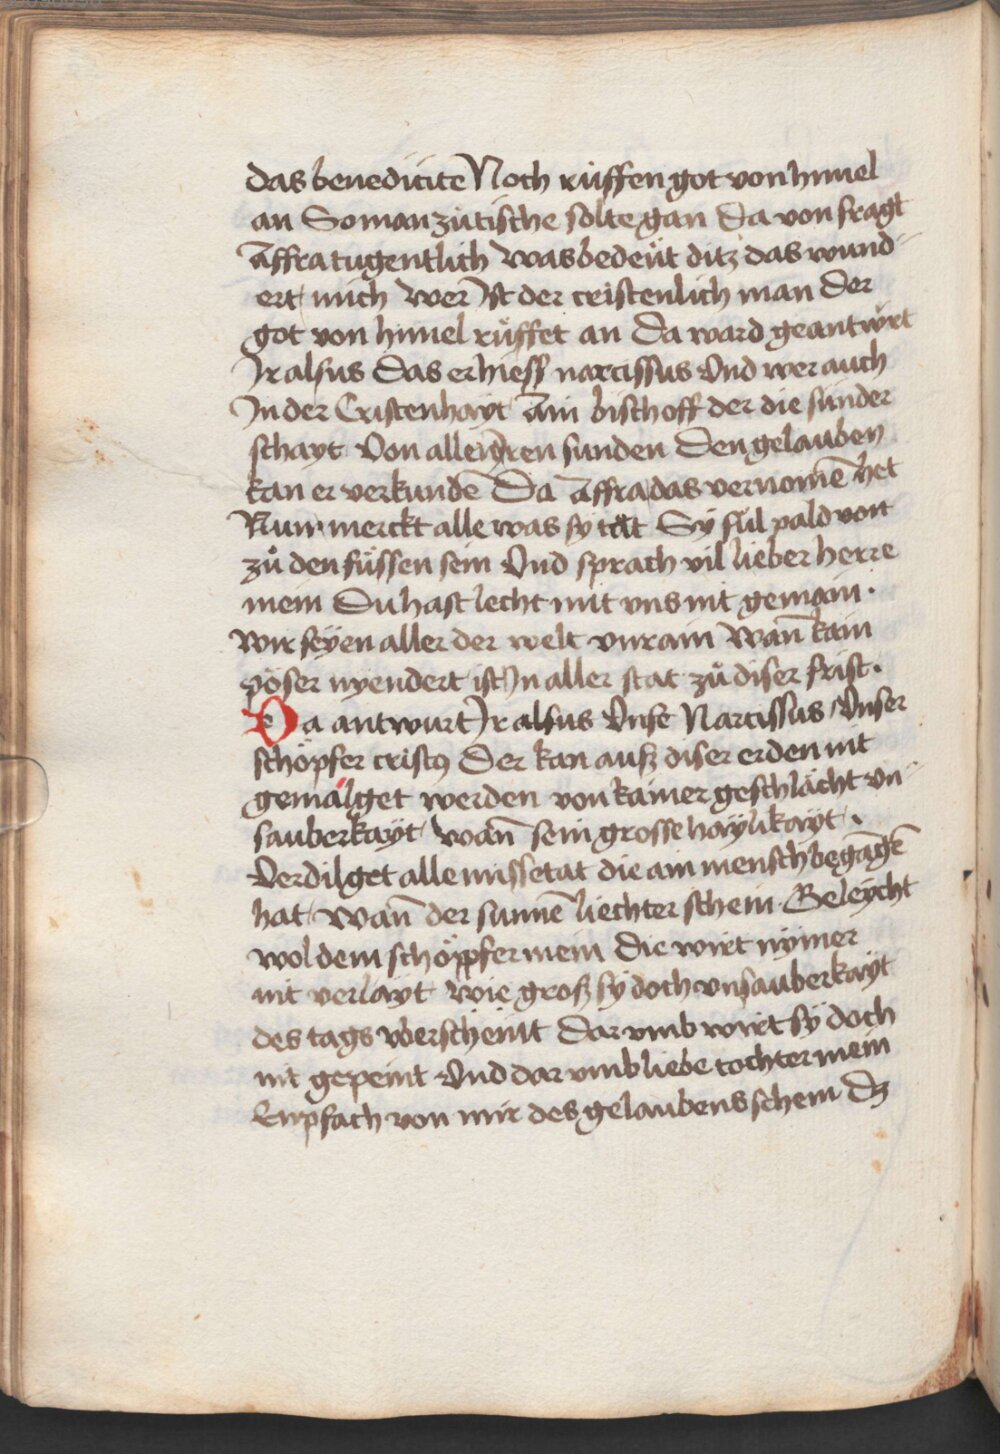 das benedicite Noch rüffen got von himel
an So man zů tische solte gan Da von fragt
Affra tugentlich Was bedeüt ditz das wund-
ert mich Wer Ist der cristenlich man Der
got von himel rüffet an Da ward geantwürt
Ir alsus Das er hiess narcissus Vnd wer auch
In der Cristenhayt Ain bischoff der die sunder
schayt Von allen Iren sunden Den gelauben
kan er verkundē Da Affra das vernomē het
Nun merckt alle was sy tät Sÿ fiil pald von
zů den füssen sein Vnd sprach vil lieber herre
mein Du hast lecht mit vns nit gemain ·
Wir seÿen aller der welt vnrain Wañ kain
pöser nyendert ist In aller stat zů diser frist ·
Da antwurt Ir alsus Vnse Narcissus / Vnser
schöpfer cristꝯ Der kan auß diser erden nit
gemälget werden von kainer geschlächt vn-
sauberkaÿt Wañ sein grosse haÿlikaÿt ·
Verdilget alle missetat die ain mensch begāgē
hat Wañ der sunnē liechter schein Geleÿcht
wol dem schöpfer mein Die wirt nÿmer
nit verlaÿt Wie groß sÿ doch vnsauberkaÿt
des tags v̈berscheint Dar vmb wirt sÿ doch
nit gepeint Vnd dar vmb liebe tochter mein
Enpfach von mir des gelaubens schein Dz